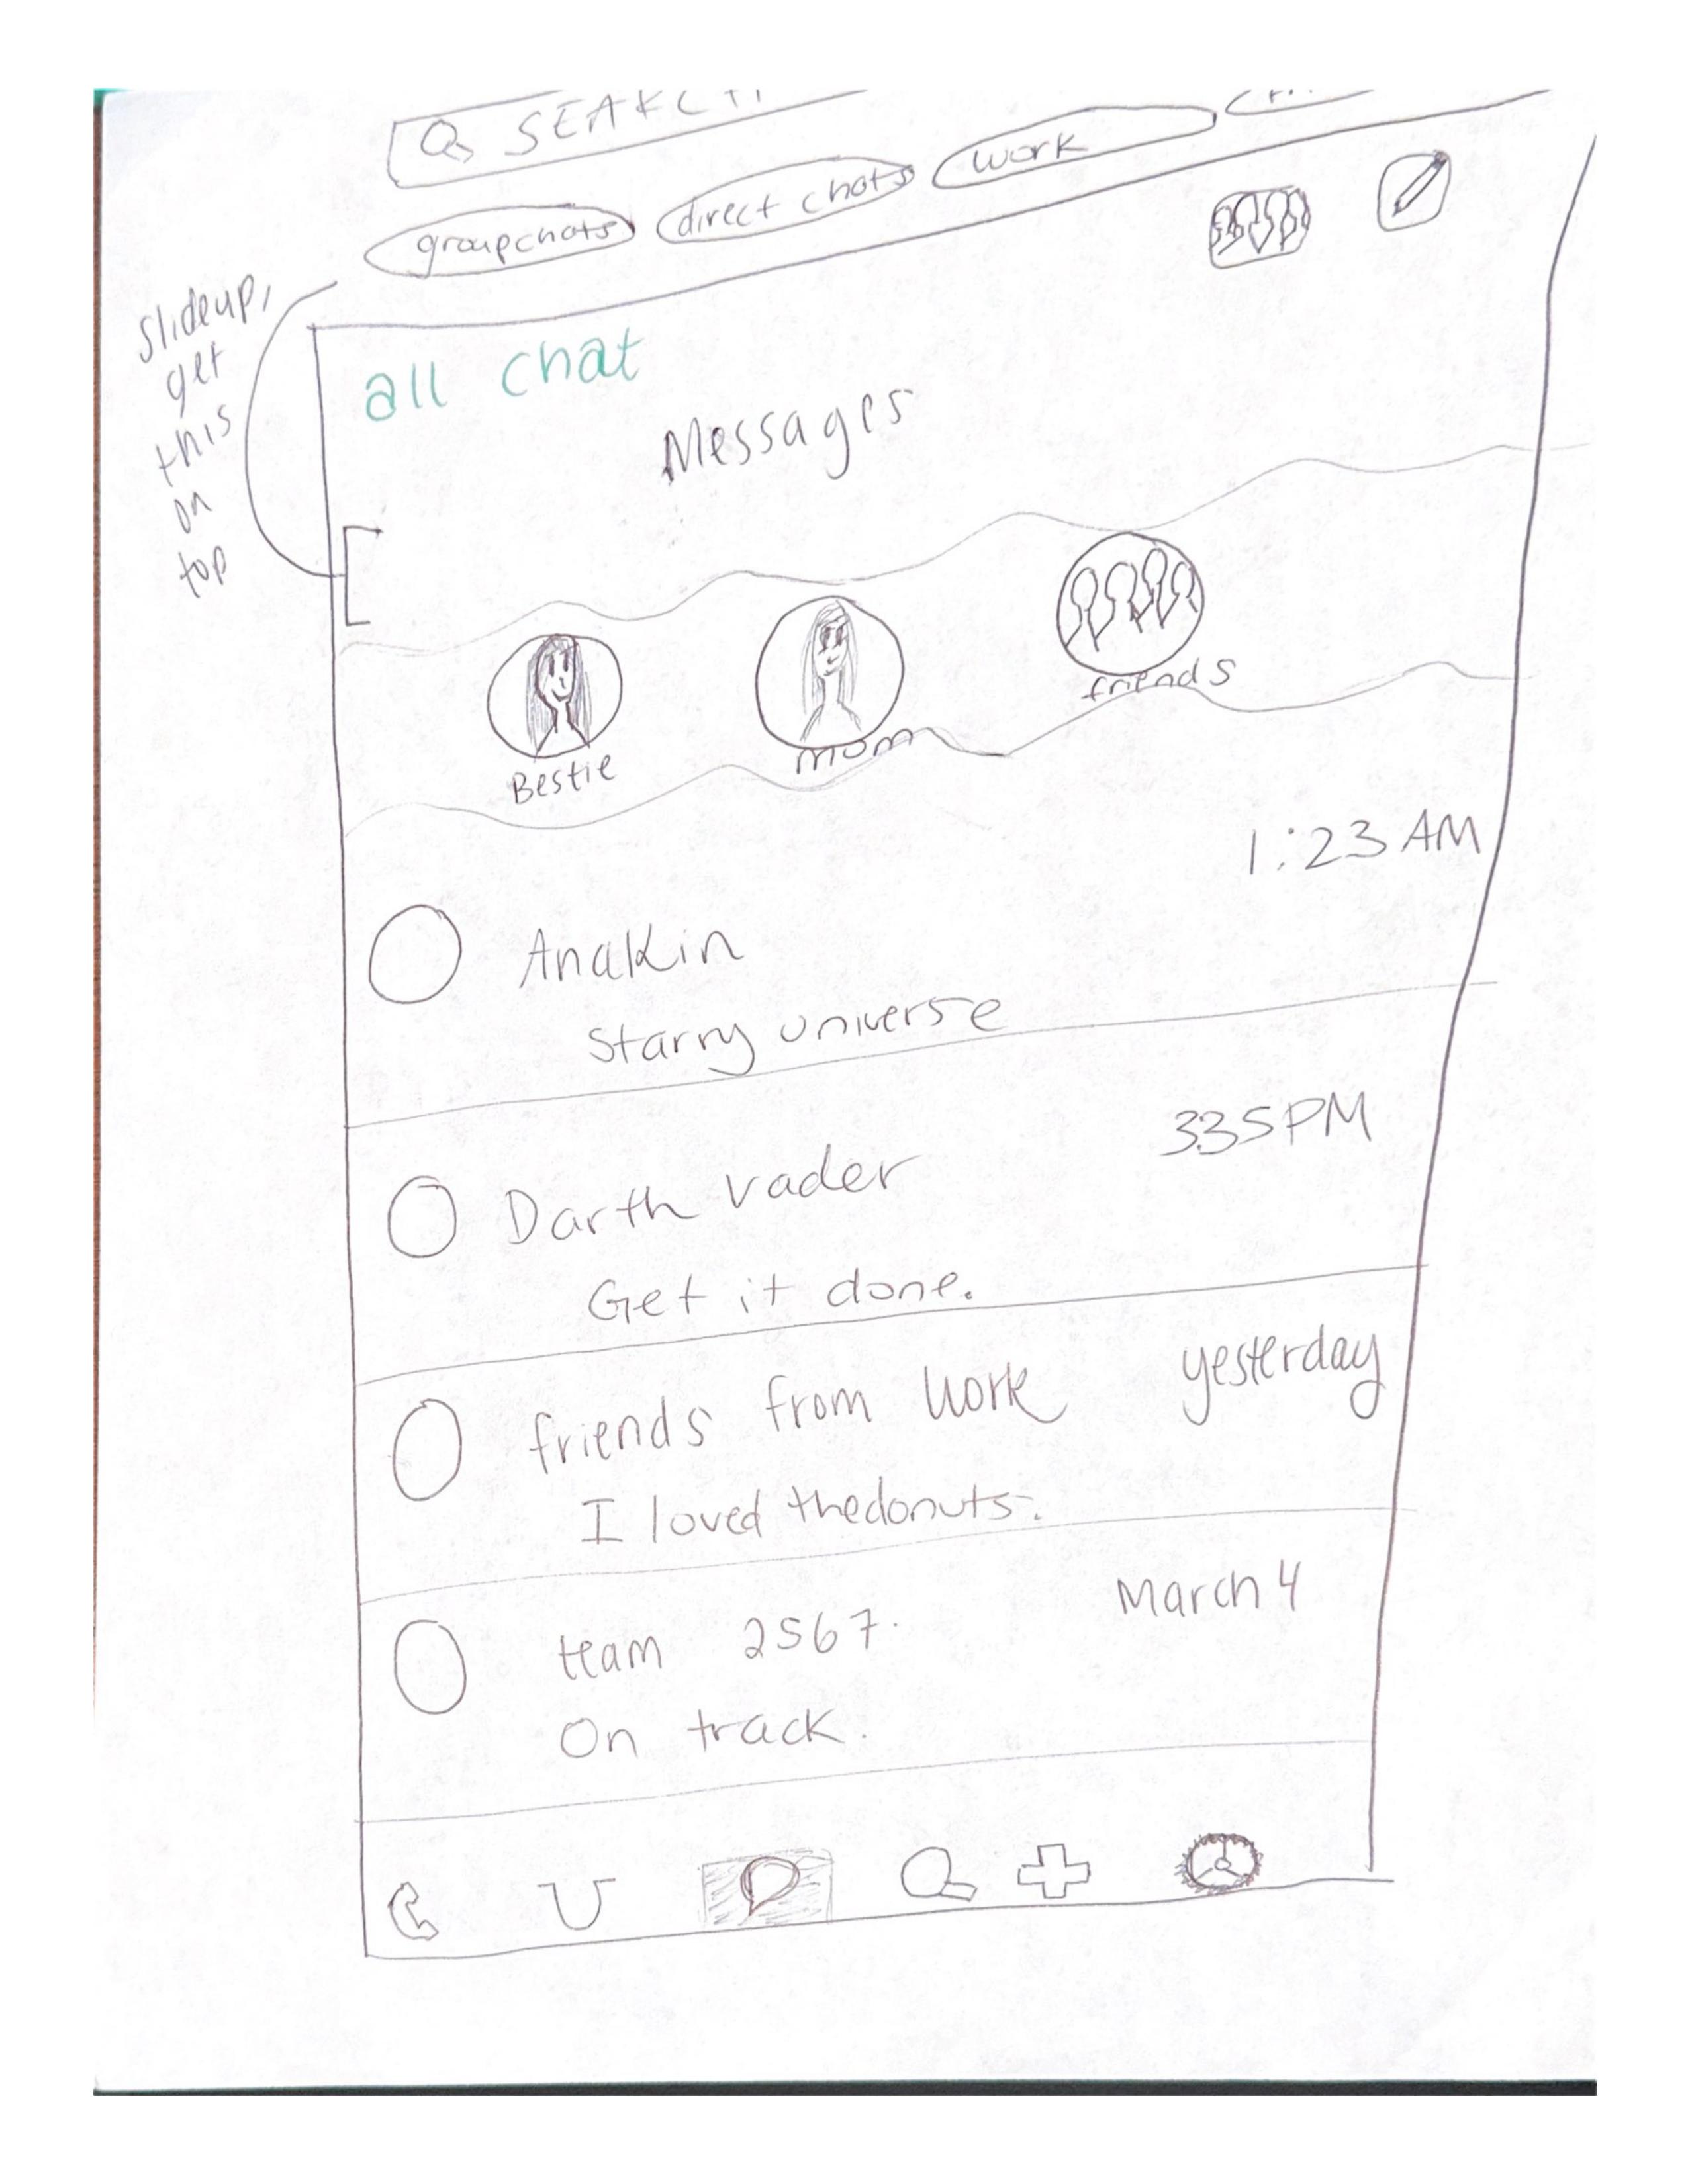 SEARCH
groupchats
direct chats
work
slideup,
get
this
on
top
all chat
Messages
Bestie
mom
friends
1:23 AM
Anakin
Starry universe
335PM
Darth vader
Get it done.
friends from work
yesterday
I loved thedonuts.
team 2567.
March 4
On track.